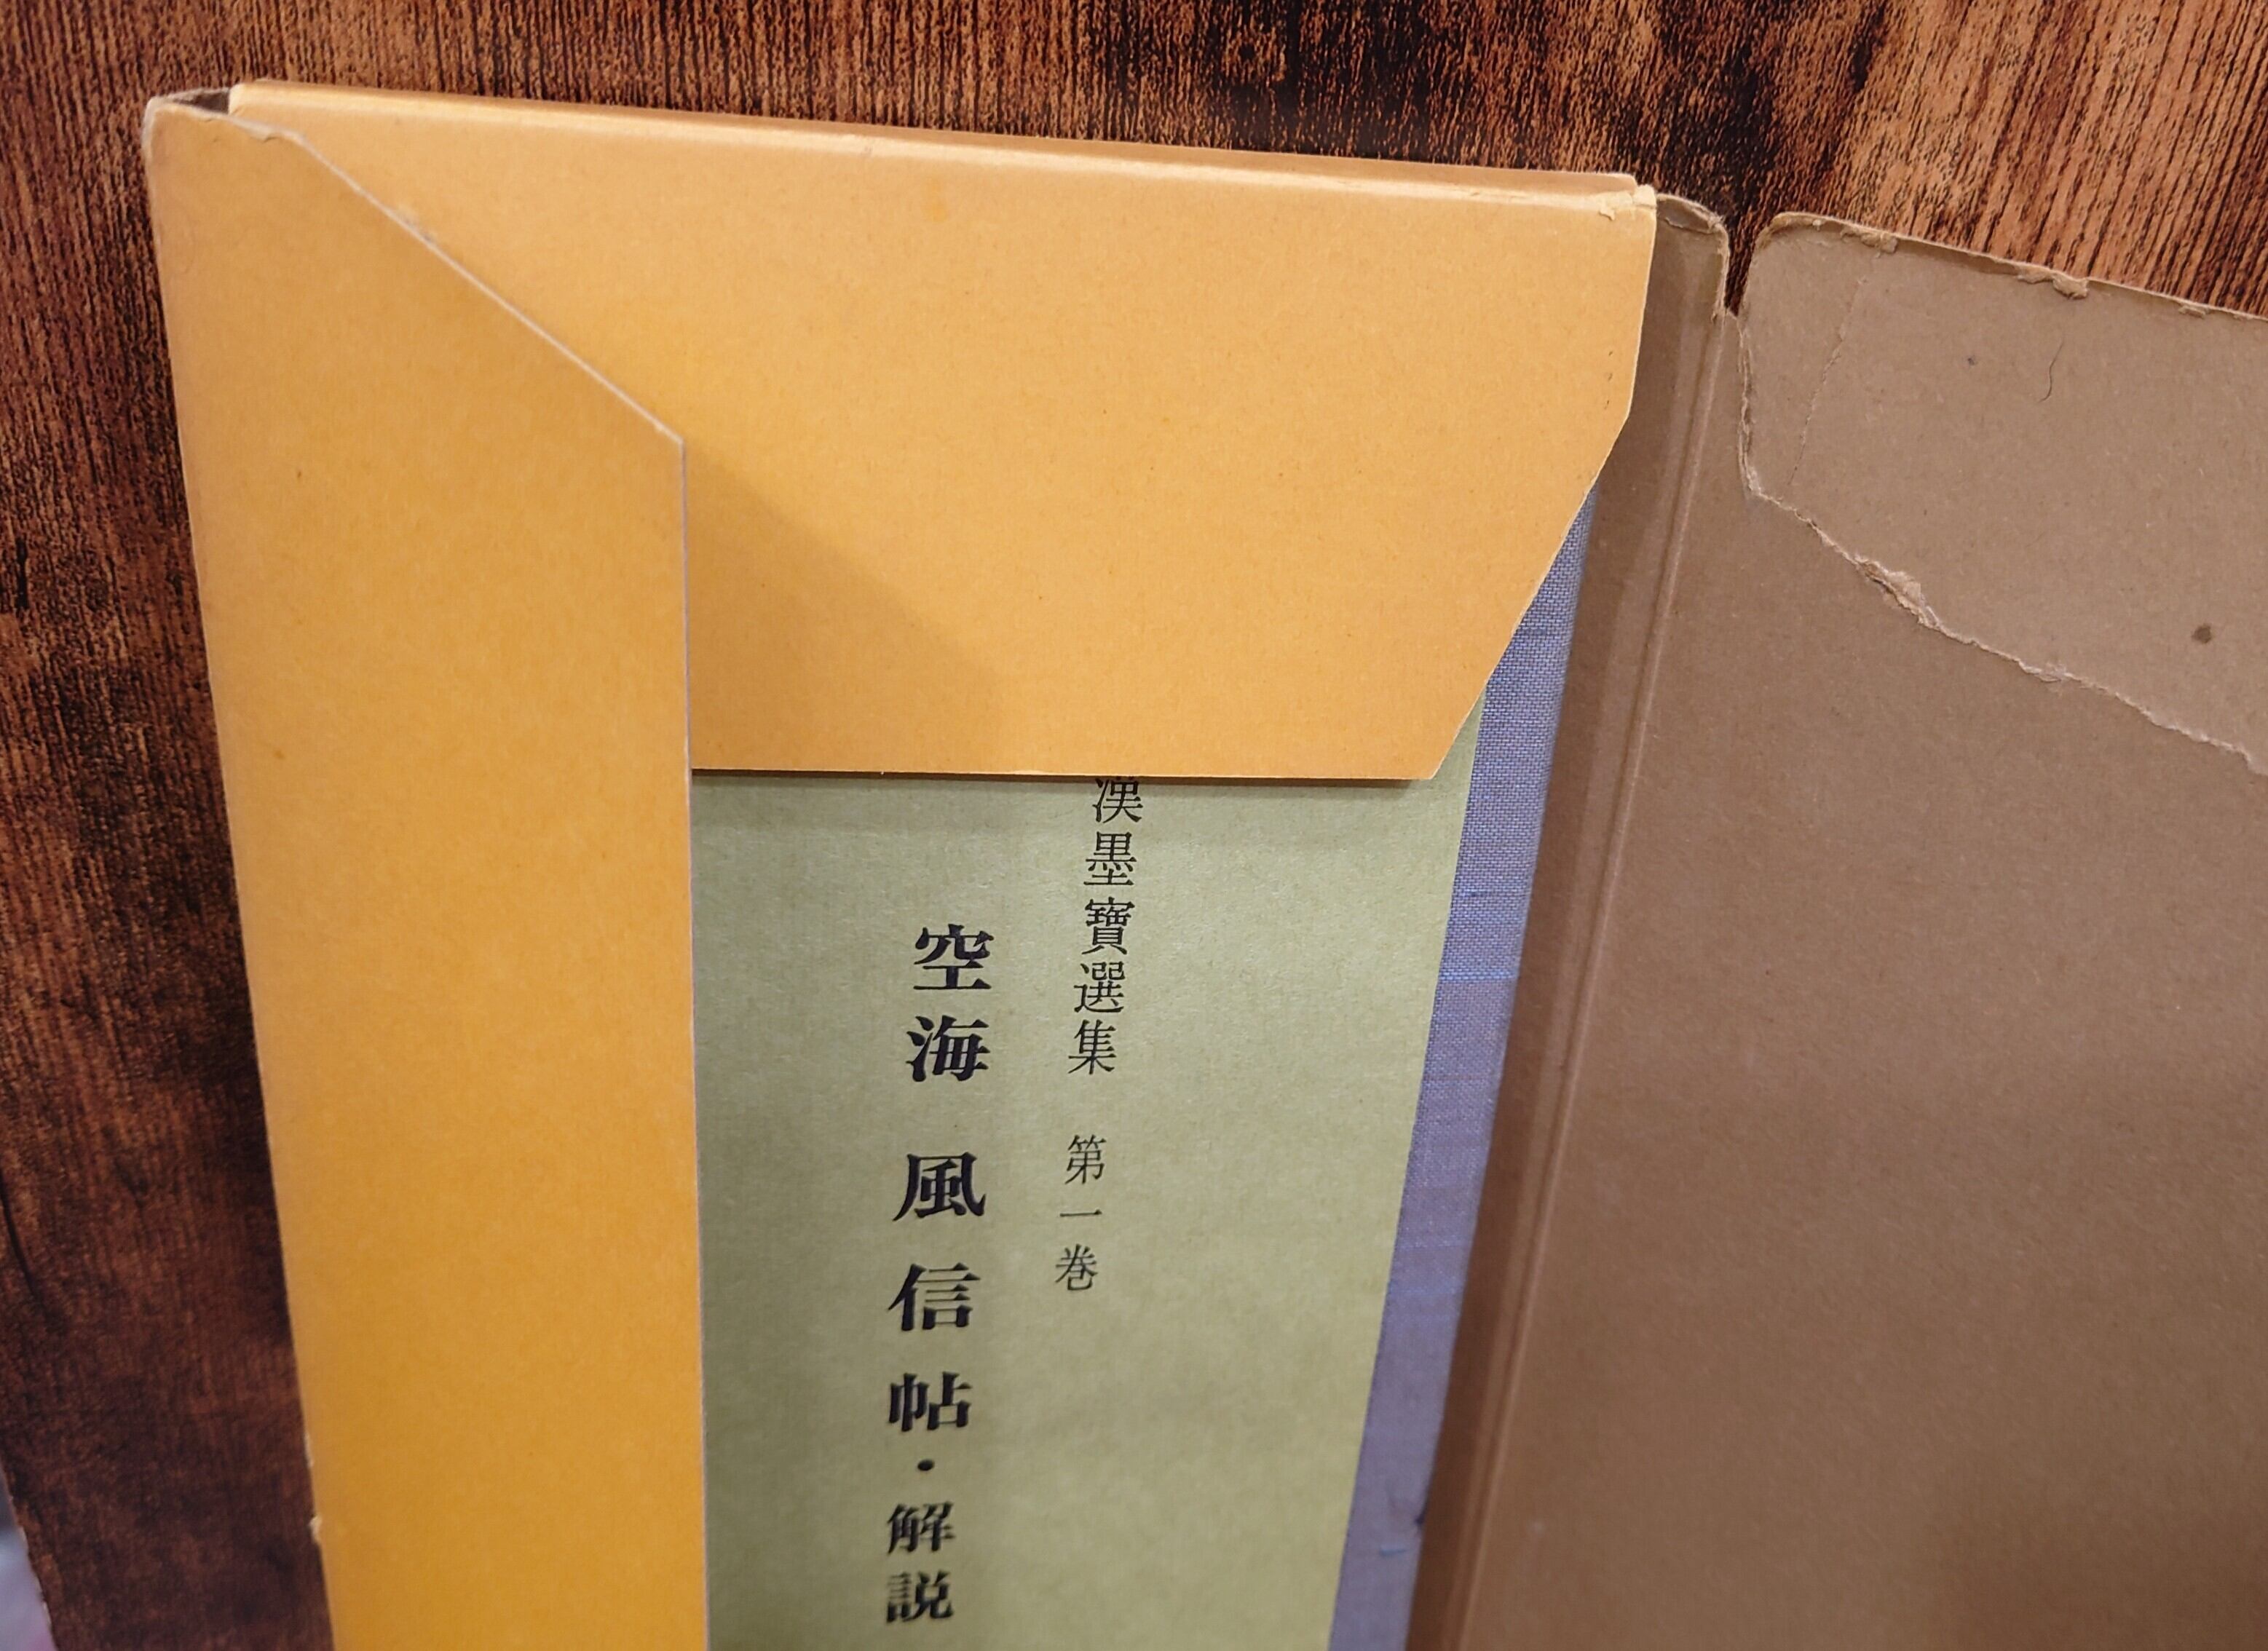 漢墨寶選集 第一巻
空海 風信帖・解説